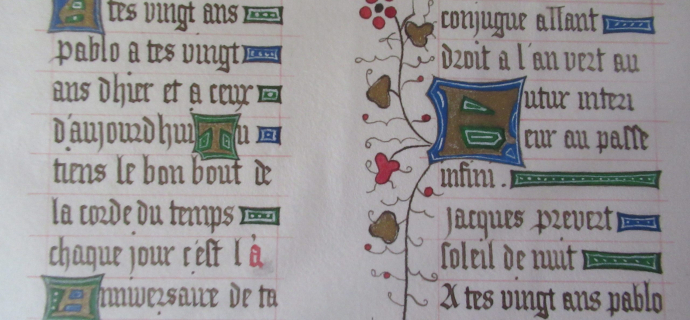 A tes vingt ans
pablo a tes vingt
ans dhier et a ceux
d'aujourdhui Tu
tiens le bon bout de
la corde du temps
chaque jour c'est l'a
Anniversaire de ta
conjugue allant
droit a l'an vert au
Futur interi
eur au passe
infini.
jacques prevert
soleil de nuit
A tes vingt ans pablo